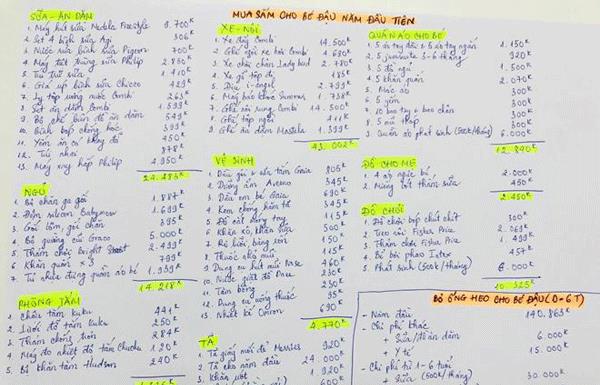 MUA SẮM CHO BÉ ĐẬU NĂM ĐẦU TIÊN
SỮA - ĂN DẶM
1. Máy hút sữa Medela Freestyle 9.700K
2. Set 4 bịch sữa Agi 306K
3. Nước rửa bình sữa Pigeon 700K
4. Máy tiệt trùng sữa Philip 2.850K
5. Túi trữ sữa 1.410K
6. Giá úp bình sữa Chicco 429K
7. Ly tập uống nước Combi 263K
8. Set ăn dặm Combi 1.399K
9. Bộ chế biến đồ ăn dặm 549K
10. Bình bóp chống hóc 399K
11. Yếm ăn có tháng đổ 450K
12. Túi nhai 878K
13. Máy xay hấp Philip 4.950K
24.283K
NGỦ
1. Bộ chăn ga gối 1.887K
2. Đệm silicon Babymow 1.699K
3. Gối lõm, gối chặn 395K
4. Bộ quây cũi Graco 5.000K
5. Thảm chơi bright Start 2.499K
6. Khăn quấn 799K
7. Tủ nhựa đựng quần áo bé 1.939K
14.218K
PHÒNG TẮM
1. Chậu tắm kuku 441K
2. Lưới đỡ tắm kuku 250K
3. Thảm chống trơn 284K
4. Máy đo nhiệt độ tắm Chuchu 120K
5. Bộ khăn tắm Hudson 240K
XE - NÔI
1. Xe đẩy Combi 14.500K
2. Ghế ngồi xe hơi Combi 4.680K
3. Xe chòi chân Ladybud 2.780K
4. Xe gỗ tập đi 185K
5. Địu i-angel 2.799K
6. Máy hát khúc Summer 738K
7. Ghế ăn rung Combi 14.500K
8. Ghế tập ngồi 411K
9. Ghế ăn dặm Mastela 1.399K
43.002K
VỆ SINH
1. Dầu gội & sữa tắm Gaia 805K
2. Dưỡng ẩm Aveeno 345K
3. Dầu em bé Gaia 690K
4. Kem chống hăm tã 345K
5. Đồ cắt móng tay 115K
6. Khăn xô, khăn sữa 500K
7. Rơ lưỡi, băng rốn 150K
8. Thuốc nhỏ mũi 115K
9. Dụng cụ hút mũi Pase 460K
10. Nước giặt đồ Dnee 230K
11. Tăm bông 230K
12. Dụng cụ uống thuốc 95K
13. Nhiệt kế Omron 690K
4.770K
TÃ
1. Tã giấy mới đẻ Merries 920K
2. Tã cho năm đầu 24.000K
3. Khăn ướt 1.920K
QUẦN ÁO CHO BÉ
1. 5 áo tay dài & 5 áo tay ngắn 1.150K
2. 5 jumsuite 3-6 tháng 920K
3. 5 đồ ngủ 1.500K
4. 5 khăn quấn 2.070K
5. Mặc áo 300K
6. 5 yếm 300K
7. 10 bao tay & bao chân 300K
8. 5 mũ thóp 300K
9. Quần áo phát sinh (500K/tháng) 6.000K
12.840K
ĐỒ CHO MẸ
1. 4 áo ngực bú 2.000K
2. Miếng lót thấm sữa 450K
2.450K
ĐỒ CHƠI
1. Đồ chơi bóp chút chít 300K
2. Treo cũi Fisher Price 2.069K
3. Thảm chơi Fisher Price 1.499K
4. Bể bơi phao Intex 457K
5. Phát sinh (500K/tháng) 6.000K
10.325K
BỎ ỐNG HEO CHO BÉ ĐẬU (0 - 6T)
- Năm đầu 140.863K
- Chi phí khác
+ Sữa/ăn dặm 6.000K
+ Y tế 15.000K
- Chi phí từ 1-6 tuổi
+ Sữa (500K/tháng) 30.000K